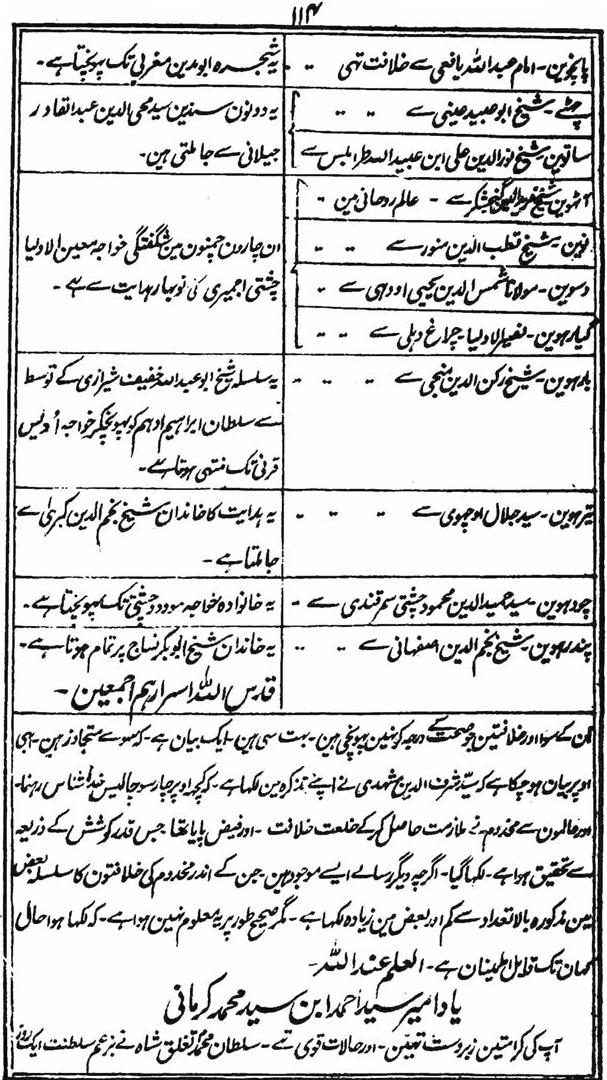 ۱۱۴
پانچوین۔ امام عبد اللہ یافعی سے خلافت تہی ۔۔ یہ شجرہ ابو مدین مغربی تک پہونچتا ہے۔
چھٹے۔ شیخ ابو عبید عینی سے ۔۔ ۔۔ یہ دونون سندین سید محی الدین عبد القادر
ساتوین۔ شیخ نور الدین علی ابن عبید اللہ طرابلس سے جیلانی سے جا ملتی ہین۔
آٹھوین شیخ فرید الدین گنجشکر سے ۔ عالم روحانی مین ۔۔
نوین۔ شیخ قطب الدین منور سے ۔۔ ۔۔ ان چارون چمنون مین شگفتگی خواجہ معین الاولیا
دسوین۔ مولانا شمس الدین یحیی اودہی سے ۔۔ چشتی اجمیری کی نوبہار ہدایت سے ہے۔
گیارہوین۔ نصیر الاولیا چراغ دہلی سے ۔۔ ۔۔
بارہوین۔ شیخ رکن الدین منجی سے ۔۔ ۔۔ ۔۔ یہ سلسلہ شیخ ابو عبد اللہ خفیف شیرازی کے توسط
سے سلطان ابراہیم ادہم کو پہونچکر خواجہ اُویس
قرنی تک منتہی ہوتا ہے۔
تیرہوین۔ سید جلال اوچہوی سے ۔۔ ۔۔ ۔۔ یہ ہدایت کا خاندان شیخ نجم الدین کبریٰ سے
جا ملتا ہے۔
چودہوین۔ سید حمید الدین محمود چشتی سمرقندی سے ۔۔ یہ خانوادہ خواجہ مودود چشتی تک پہونچتا ہے۔
پندرہوین۔ شیخ نجم الدین اصفہانی سے ۔۔ ۔۔ یہ خاندان شیخ ابوبکر نساج پر تمام ہوتا ہے۔
قدس اللہ اسرارہم اجمعین۔
ان کے سوا اور خلافتین جو صحت کے درجہ کو نہین پہونچی ہین۔ بہت سی ہین۔ ایک بیان ہے۔ کہ سو سے متجاوز ہین۔ ابھی
اوپر بیان ہو چکا ہے کہ سید شرف الدین مشہدی نے اپنے تذکرہ مین لکھا ہے۔ کہ کچھ اوپر چار سو چالیس خدا شناس رہنما۔
اور عالمون سے مخدوم نے ملازمت حاصل کر کے خلعت خلافت ۔ اور فیض پایا تھا جس قدر کوشش کے ذریعہ
سے تحقیق ہوا ہے۔ لکھا گیا۔ اگرچہ دیگر رسالے ایسے موجود ہین جن کے اندر مخدوم کی خلافتون کا سلسلہ بعض
مین مذکورہ بالا تعداد سے کم اور بعض مین زیادہ لکھا ہے۔ مگر صحیح طور پر یہ معلوم نہین ہوا ہے۔ کہ لکھا ہوا حال
کہان تک قابل طمینان ہے۔ العلم عند اللہ۔
یاد امیر سید احمد ابن سید محمد کرمانی
آپ کی کرامتین زبردست تہین۔ اور حالات قوی تھے۔ سلطان محمد تغلق شاہ نے بزعم سلطنت ایک روز